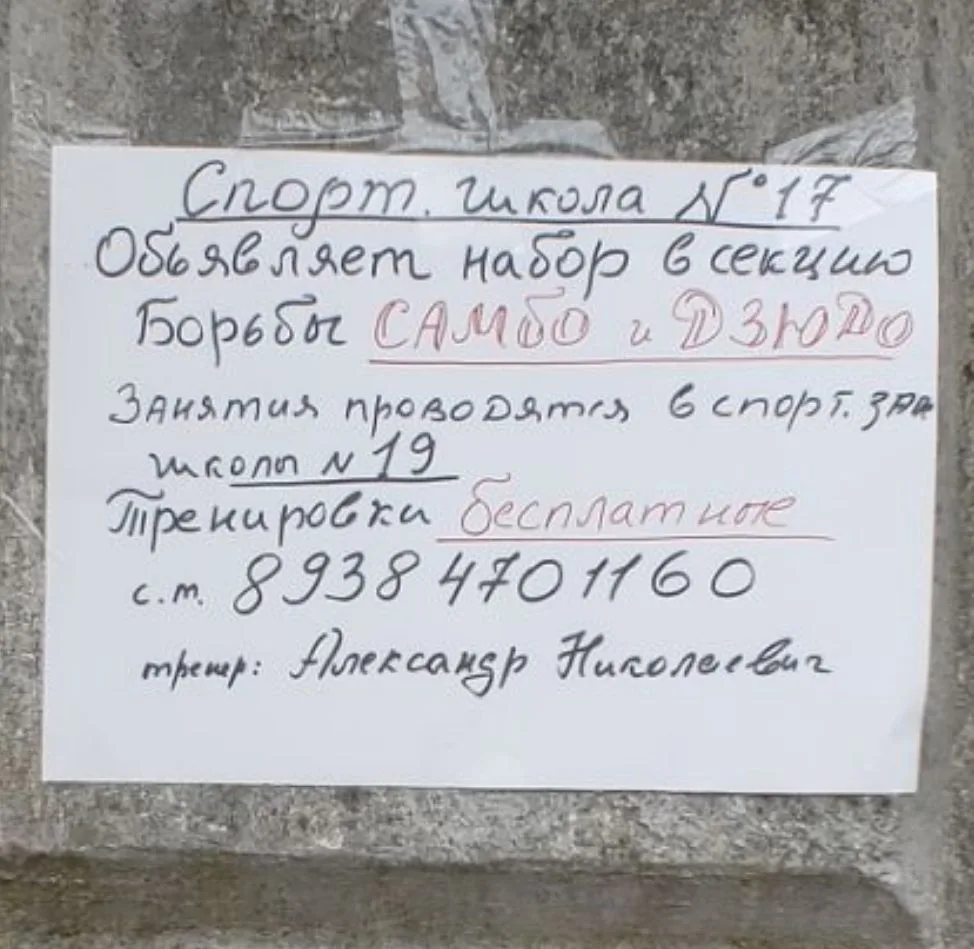 Спорт. школа №17
Обьявляет набор в секцию
Борьбы САМБО и ДЗЮДО
Занятия проводятся в спорт.
школы N 19
Тренировки бесплатные
с.т. 8938 4701160
тренер: Александр Николаевич